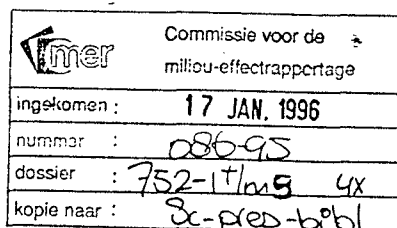 mer
Commissie voor de
milieu-effectrapportage
ingekomen : 17 JAN. 1996
nummer : 086-95
dossier : 752-I+/m9 4x
kopie naar : Sc-pres-bibl